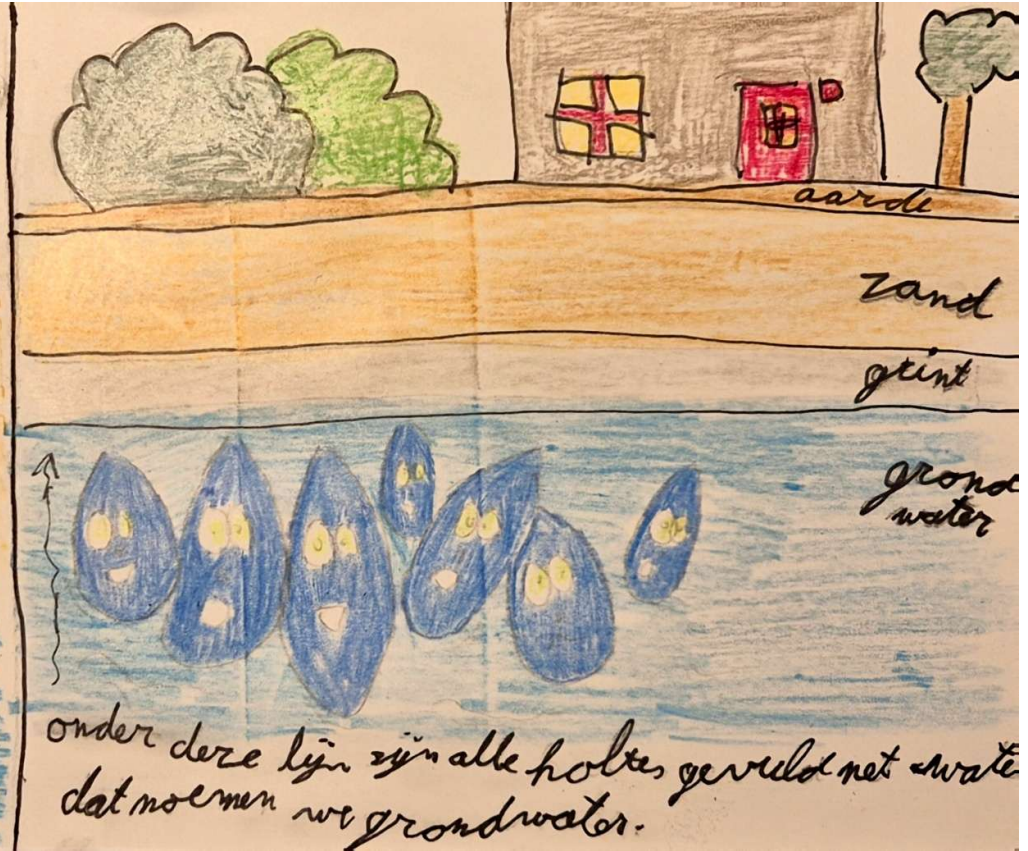 aarde
zand
grint
grond
water
onder deze lijn zijn alle holtes gevuld met water
dat noemen we grondwater.